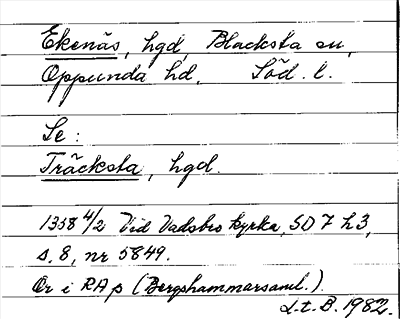 Ekenäs, hgd, Blacksta sn,
Oppunda hd. Söd. l.
Se:
Träcksta, hgd.
1358 4/2 Vid Vadsbro kyrka, SD 7 h 3,
s. 8, nr 5849.
Or i RAp (Bergshammarsaml.).
L.t.B. 1982.